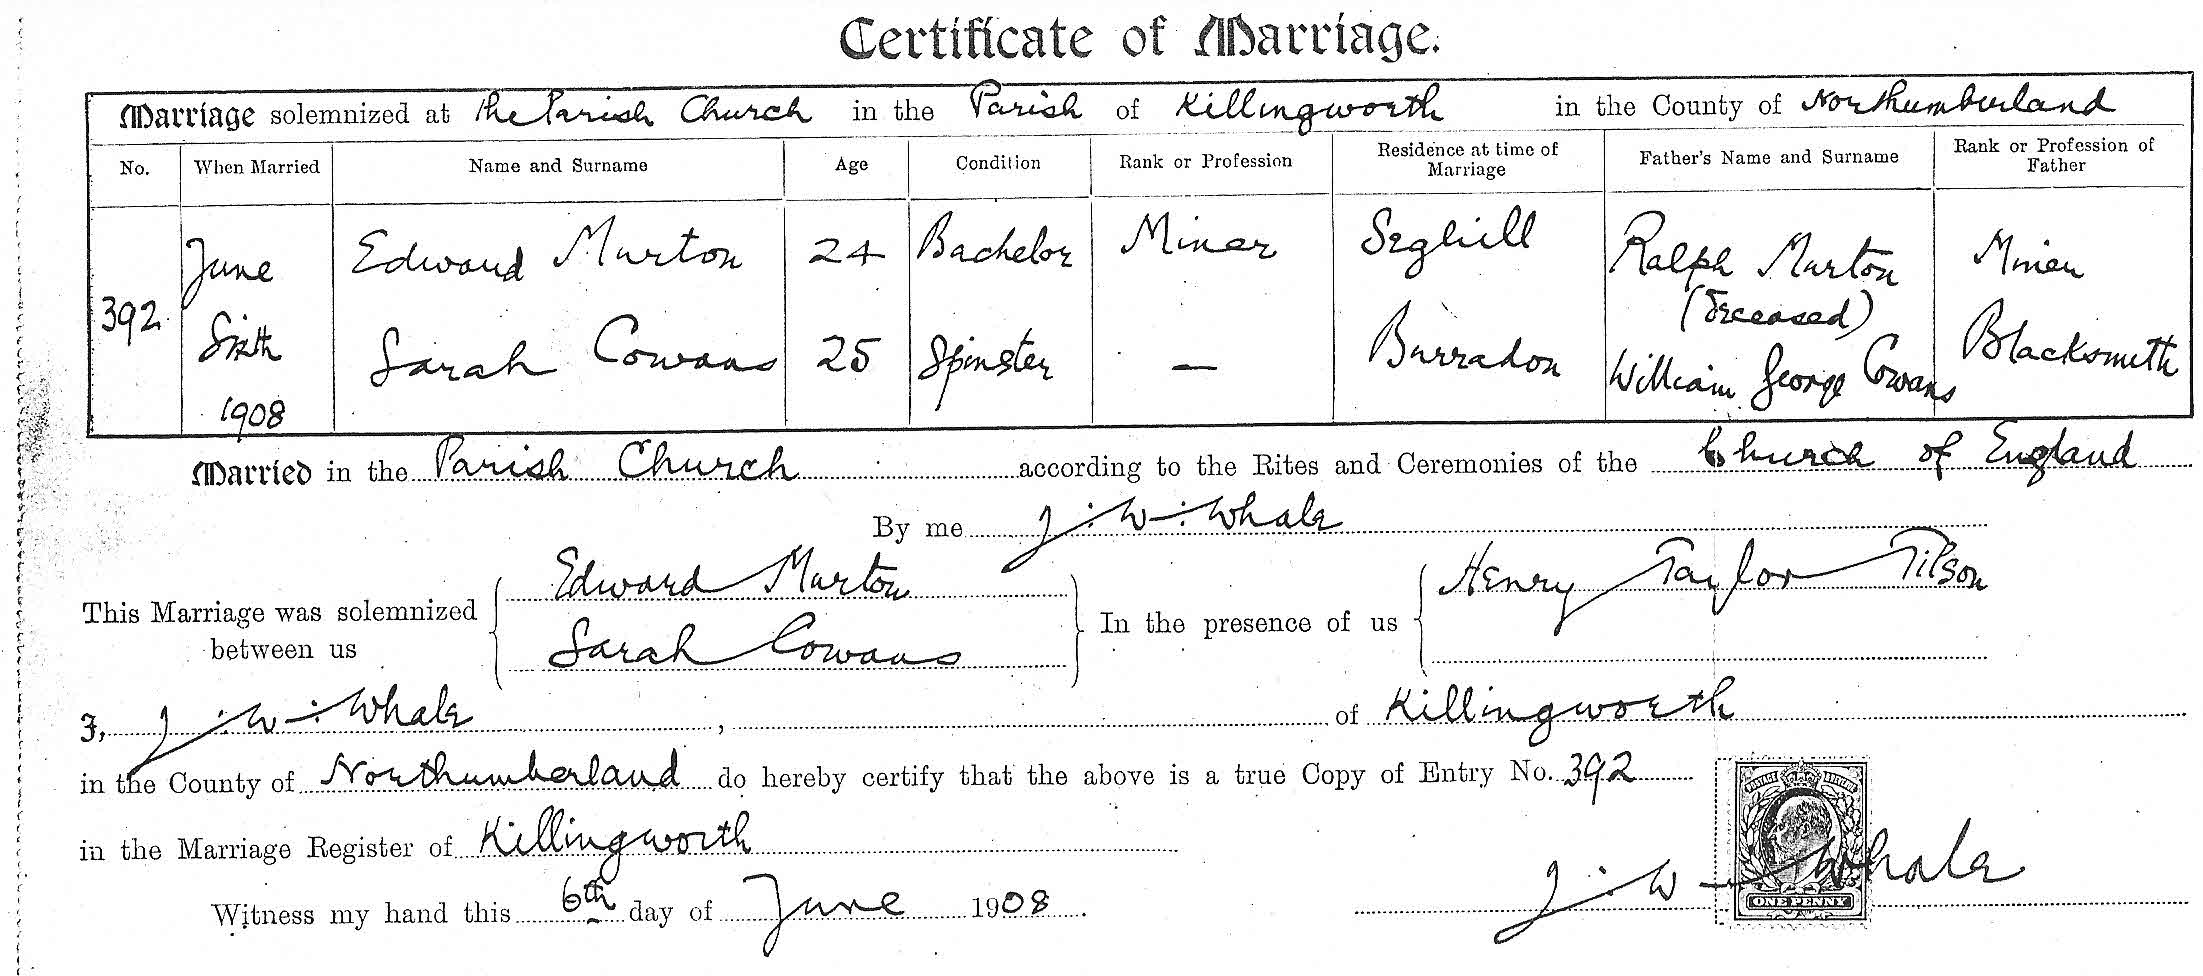 Certificate of Marriage.
Marriage solemnized at the Parish Church in the Parish of Killingworth in the County of Northumberland
No. When Married Name and Surname Age Condition Rank or Profession Residence at time of Marriage Father's Name and Surname Rank or Profession of Father
392 June Sixth 1908
Edward Murton 24 Bachelor Miner Seghill Ralph Murton (deceased) Miner
Sarah Cowans 25 Spinster — Burradon William George Cowans Blacksmith
Married in the Parish Church according to the Rites and Ceremonies of the Church of England
By me J. W. Whale
This Marriage was solemnized between us Edward Murton Sarah Cowans In the presence of us Henry Taylor Tilson
I, J. W. Whale, of Killingworth
in the County of Northumberland do hereby certify that the above is a true Copy of Entry No. 392
in the Marriage Register of Killingworth
Witness my hand this 6th day of June 1908.
J. W. Whale
POSTAGE REVENUE
ONE PENNY